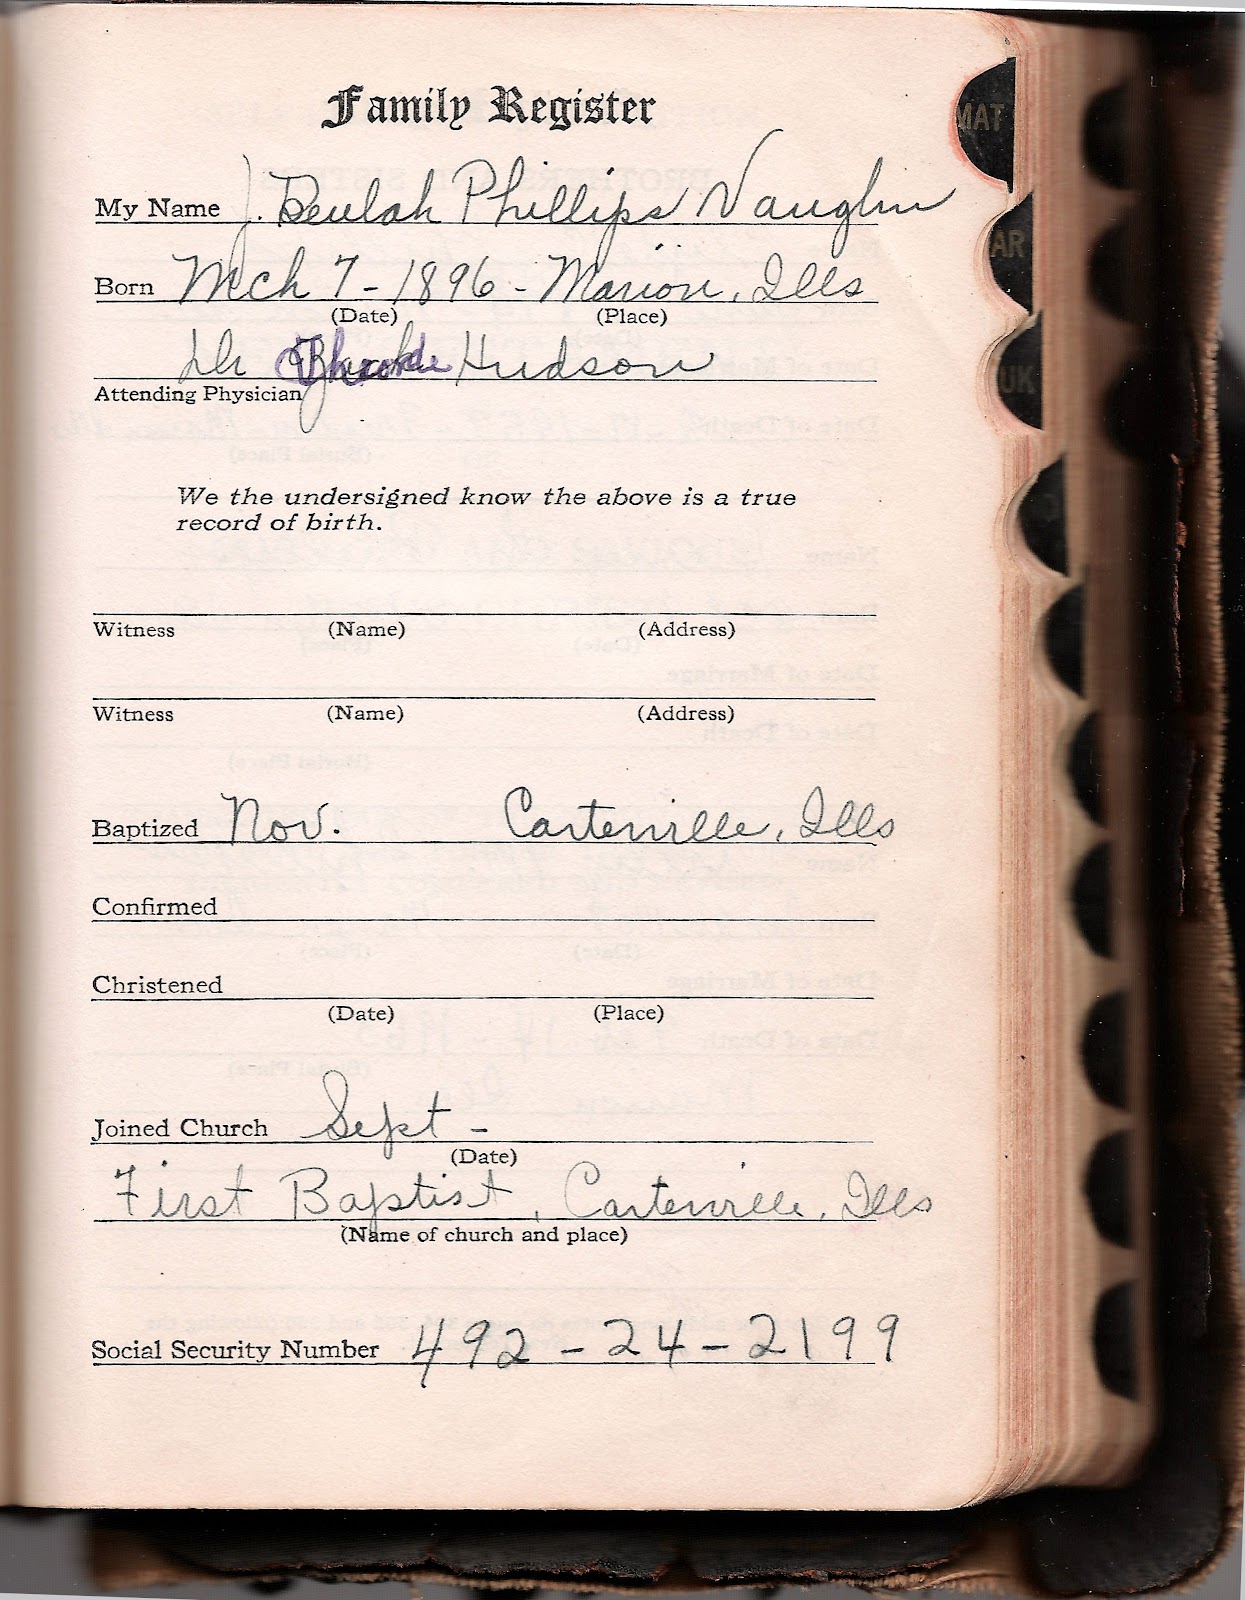 Family Register
My Name J. Beulah Phillips Vaughn
Born Mch 7 - 1896 - Marion, Ills
(Date) (Place)
Dr Hudson
Attending Physician
We the undersigned know the above is a true
record of birth.
Witness (Name) (Address)
Witness (Name) (Address)
Baptized Nov. Carterville, Ills
Confirmed
Christened
(Date) (Place)
Joined Church Sept -
(Date)
First Baptist, Carterville, Ills
(Name of church and place)
Social Security Number 492-24-2199
MAT
AR
UK